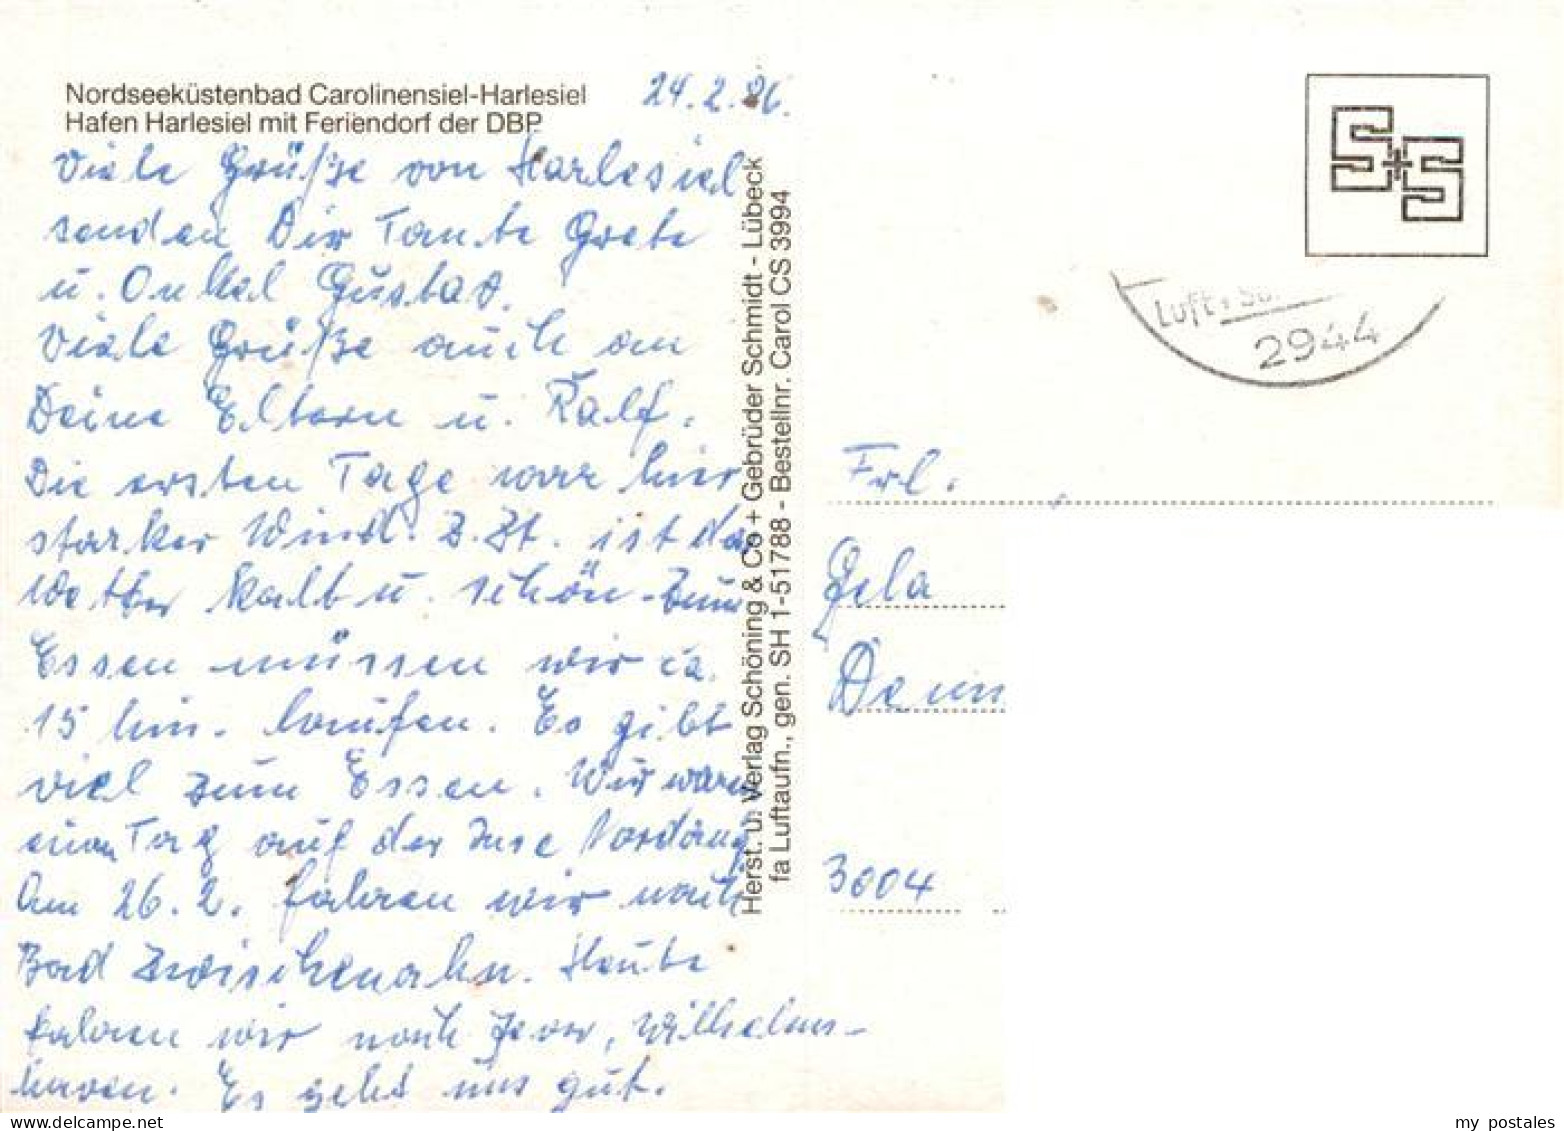 Nordseeküstenbad Carolinensiel-Harlesiel
Hafen Harlesiel mit Feriendorf der DBP
24.2.86.
Viele Grüße von Harlesiel
senden Dir Tante Grete
u. Onkel Gustav.
Viele Grüße auch an
Deine Eltern u. Ralf.
Die ersten Tage war hier
starker Wind. Z.Zt. ist das
Wetter kalt u. schön. Zum
Essen müssen wir ca.
15 Min. laufen. Es gibt
viel zum Essen. Wir waren
einen Tag auf der Insel
Am 26.2. fahren wir nach
Bad Zwischenahn. Heute
fahren wir nach Jever, Wilhelms-
haven. Es geht uns gut.
Herst. u. Verlag Schöning & Co + Gebrüder Schmidt - Lübeck
fa Luftaufn., gen. SH 1-51788 - Bestellnr. Carol CS 3994
S+S
Luft
2944
Frl.
Gela
3004
my postales